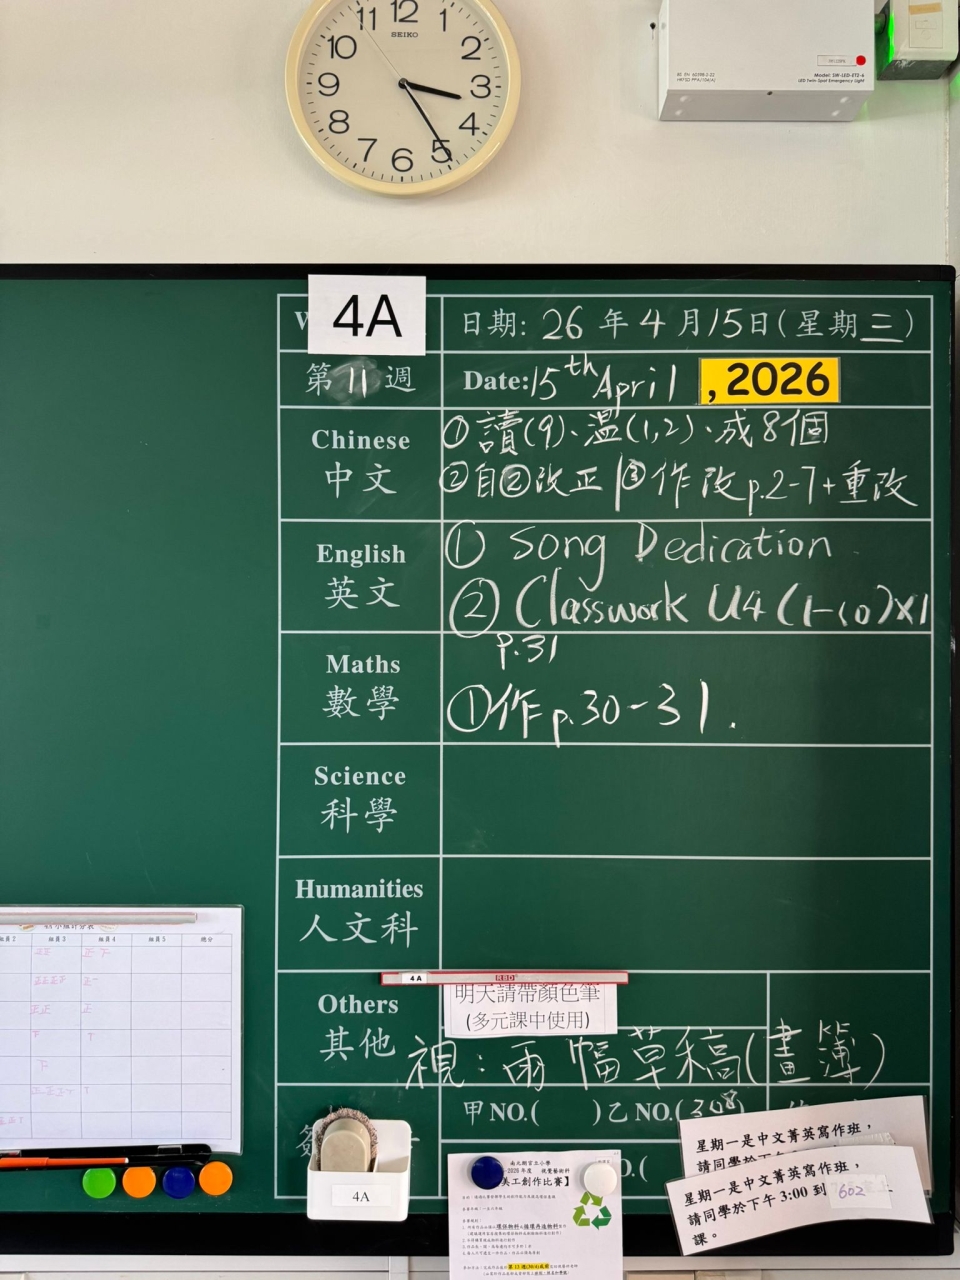 11 12 1
10 2
9 3
8 4
7 6 5
SEIKO
Model: SW-LED-ET2-6
LED Twin-Spot Emergency Light
4A
日期: 26 年 4 月 15 日(星期三)
第 11 週
Date: 15th April , 2026
Chinese
中文
① 讀(9)、溫(1,2)、成8個
②自②改正 ③作改p.2-7+重改
English
英文
① Song Dedication
② Classwork U4 (1-10)x1
p.31
Maths
數學
①作p.30-31.
Science
科學
Humanities
人文科
Others
其他
4A
明天請帶顏色筆
(多元課中使用)
視:兩幅草稿(畫簿)
甲 NO.( )乙 NO.(308)
組員 3 組員 4 組員 5 總分
4A
美工創作比賽】
星期一是中文菁英寫作班,
星期一是中文菁英寫作班,
請同學於下午 3:00 到 602
課。